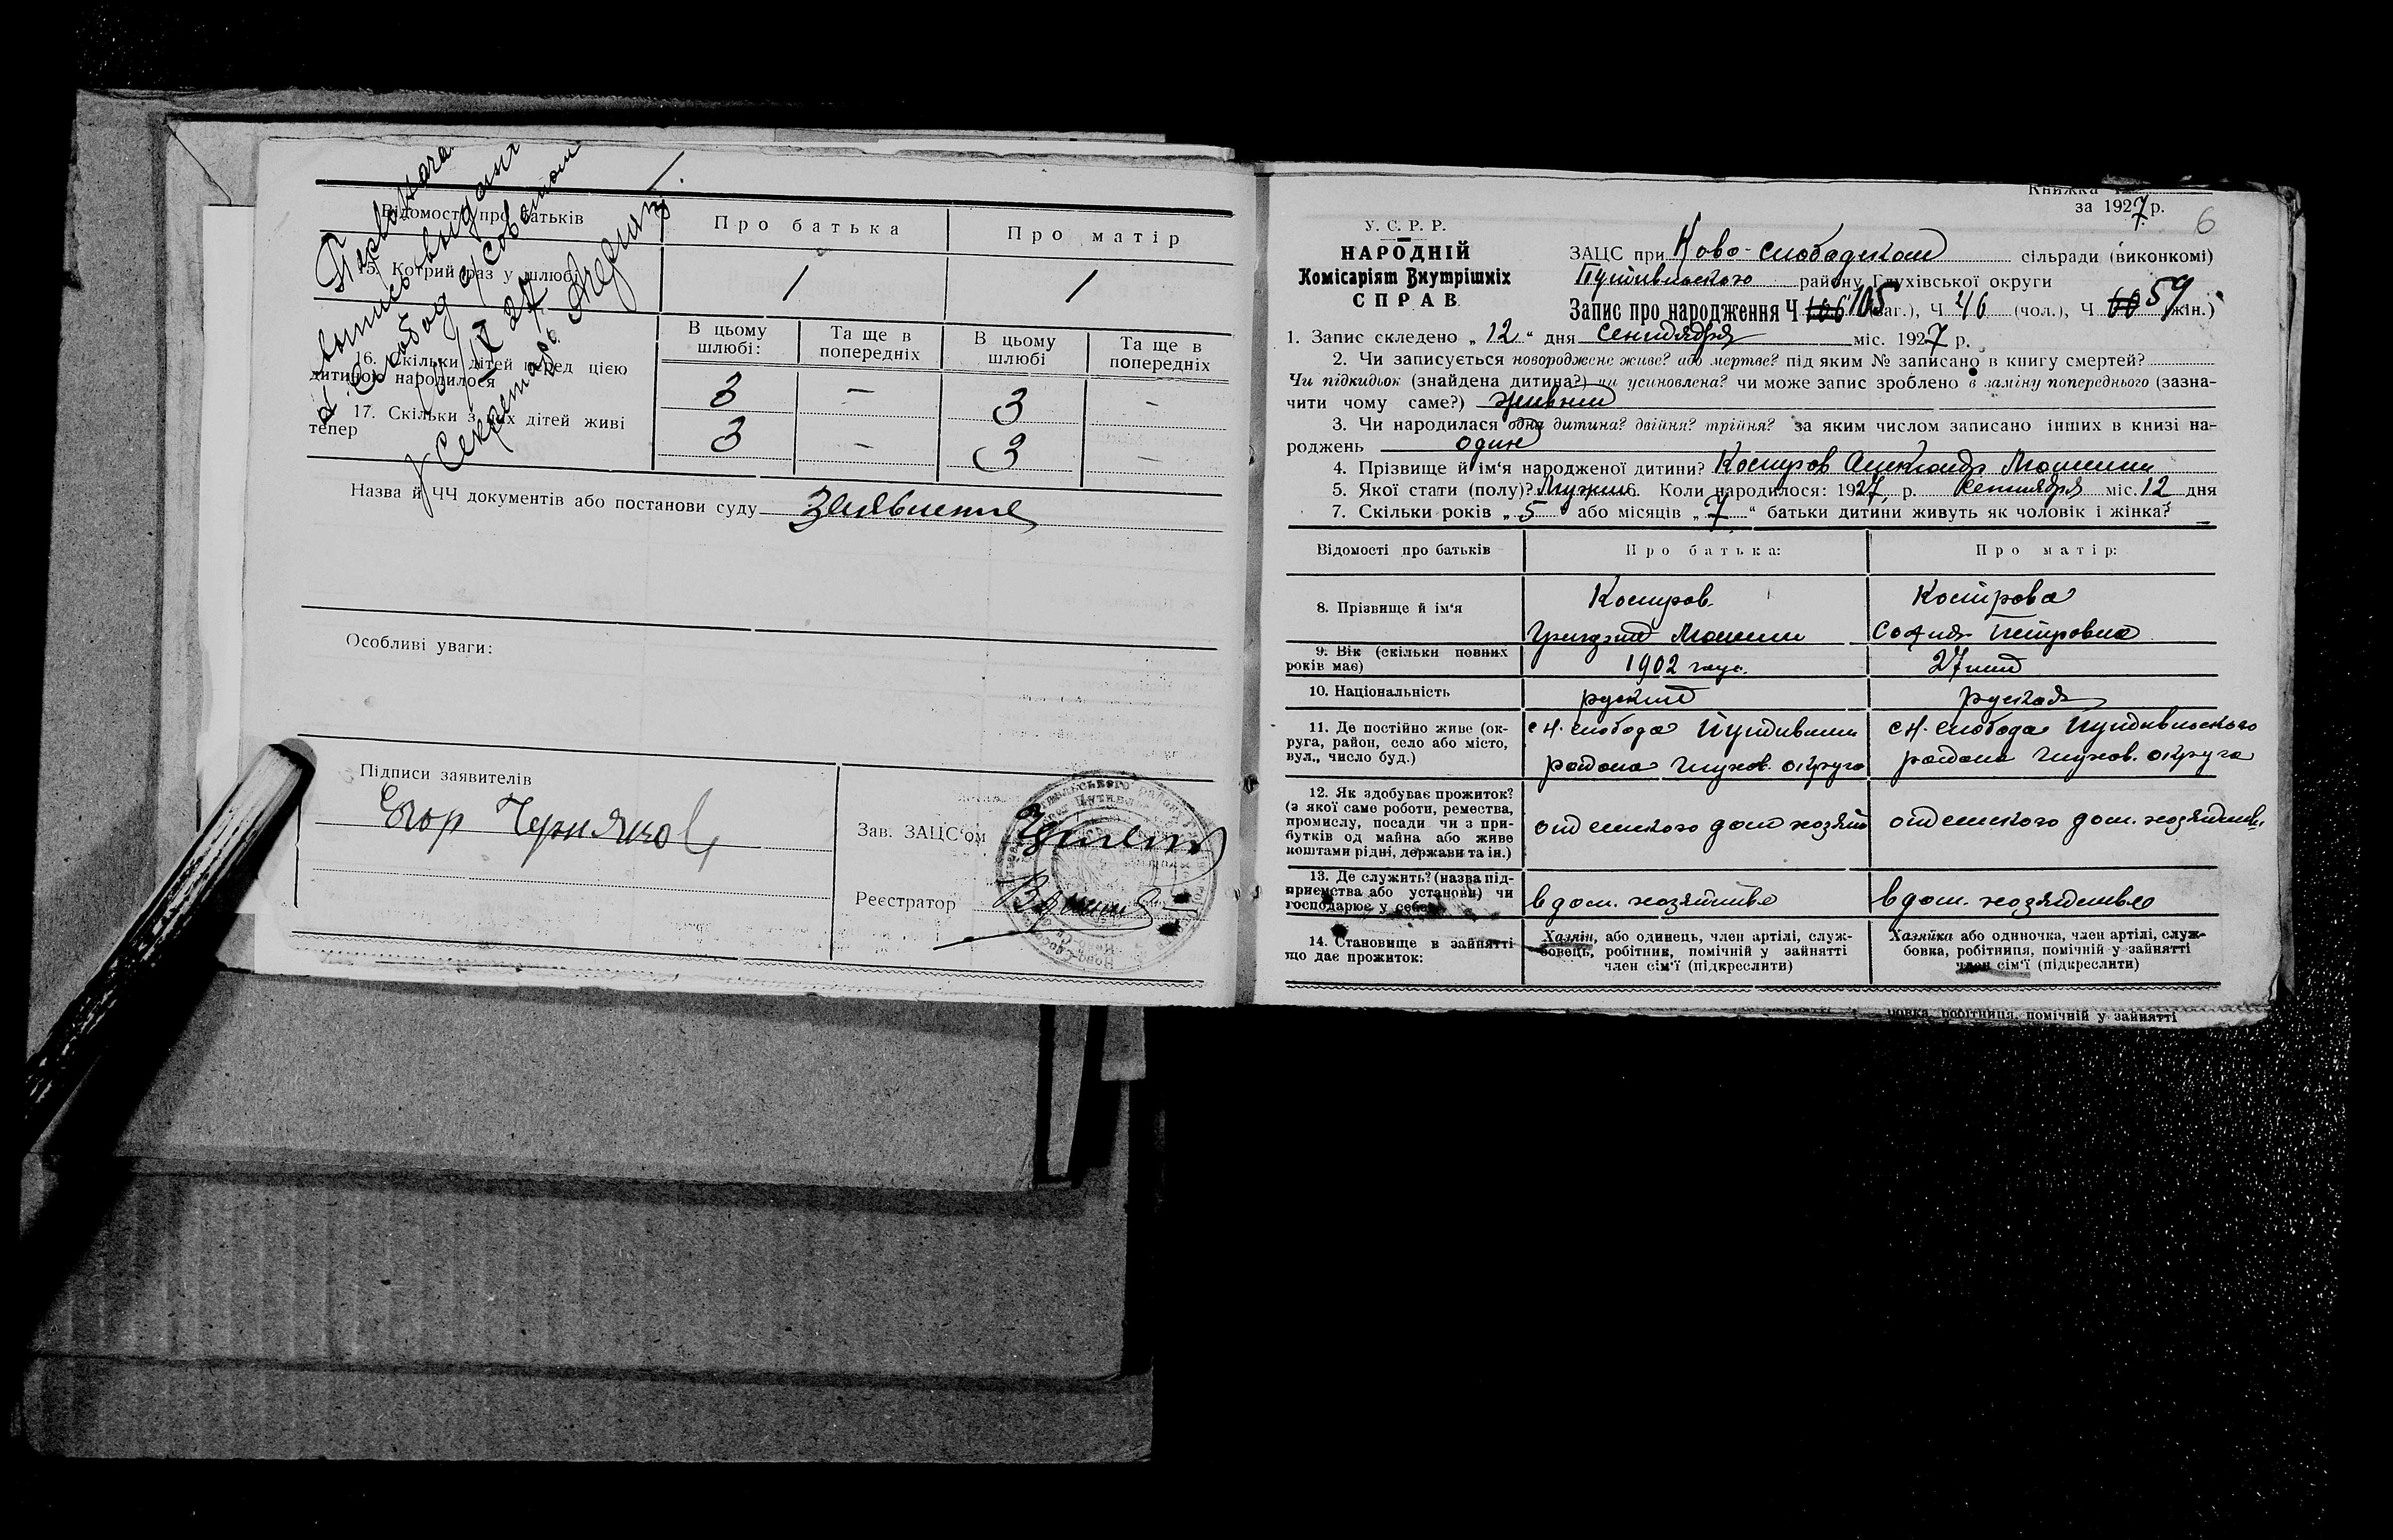 Відомості про батьків
Про батька
Про матір
15. Котрий раз у шлюбі
1
1
16. Скільки дітей перед цією
дитиною народилося
В цьому
шлюбі:
Та ще в
попередніх
В цьому
шлюбі
Та ще в
попередніх
3 — 3 -
17. Скільки з них дітей живі
тепер
3 — 3 —
Секретарь
Назва й ЧЧ документів або постанови суду
Особливі уваги:
Підписи заявителів
Егор Черняков
Зав. ЗАЦС'ом
Реєстратор
Книжка
за 1927 р.
6
У. С. Р. Р.
НАРОДНІЙ
Комісаріят Внутрішніх
СПРАВ
ЗАЦС при Ново-слободском сільради (виконкомі)
Путивльского району Глухівської округи
Запис про народження Ч 106 105 (заг.), Ч 46 (чол.), Ч 60 59 (жін.)
1. Запис складено „12“ дня сентября міс. 1927 р.
2. Чи записується новороджене живе? або мертве? під яким № записано в книгу смертей?
Чи підкидьок (знайдена дитина?) чи усиновлена? чи може запис зроблено в заміну попереднього (зазна-
чити чому саме?) живым
3. Чи народилася одна дитина? двійня? трійня? за яким числом записано інших в книзі на-
роджень один
4. Прізвище й ім'я народженої дитини? Костров Александр
5. Якої стати (полу)? Мужск 6. Коли народилося: 1927 р. сентября міс. 12 дня
7. Скільки років „5 або місяців „7“ батьки дитини живуть як чоловік і жінка?
Відомості про батьків
Про батька:
Про матір:
8. Прізвище й ім'я
Костров
Кострова
София Петровна
9. Вік (скільки повних
років має)
1902 году.
27 лет
10. Національність
руский
руская
11. Де постійно живе (ок-
руга, район, село або місто,
вул., число буд.)
с Н. слобода Путивльск
района Глухов. округа
с Н. слобода Путивльского
района Глухов. округа
12. Як здобуває прожиток?
(з якої саме роботи, ремества,
промислу, посади чи з при-
бутків од майна або живе
коштами рідні, держави та ін.)
от сельского дом хозяй
от сельского дом. хозяйств.
13. Де служить? (назва під-
приємства або установи) чи
господарює у себе
в дом. хозяйстве
в дом. хозяйстве
14. Становище в зайнятті
що дає прожиток:
Хазяїн, або одинець, член артілі, служ-
бовець, робітник, помічній у зайнятті
член сім'ї (підкреслити)
Хазяйка або одиночка, член артілі, служ-
бовка, робітниця, помічній у зайнятті
член сім'ї (підкреслити)
бовка, робітниця, помічній у зайнятті